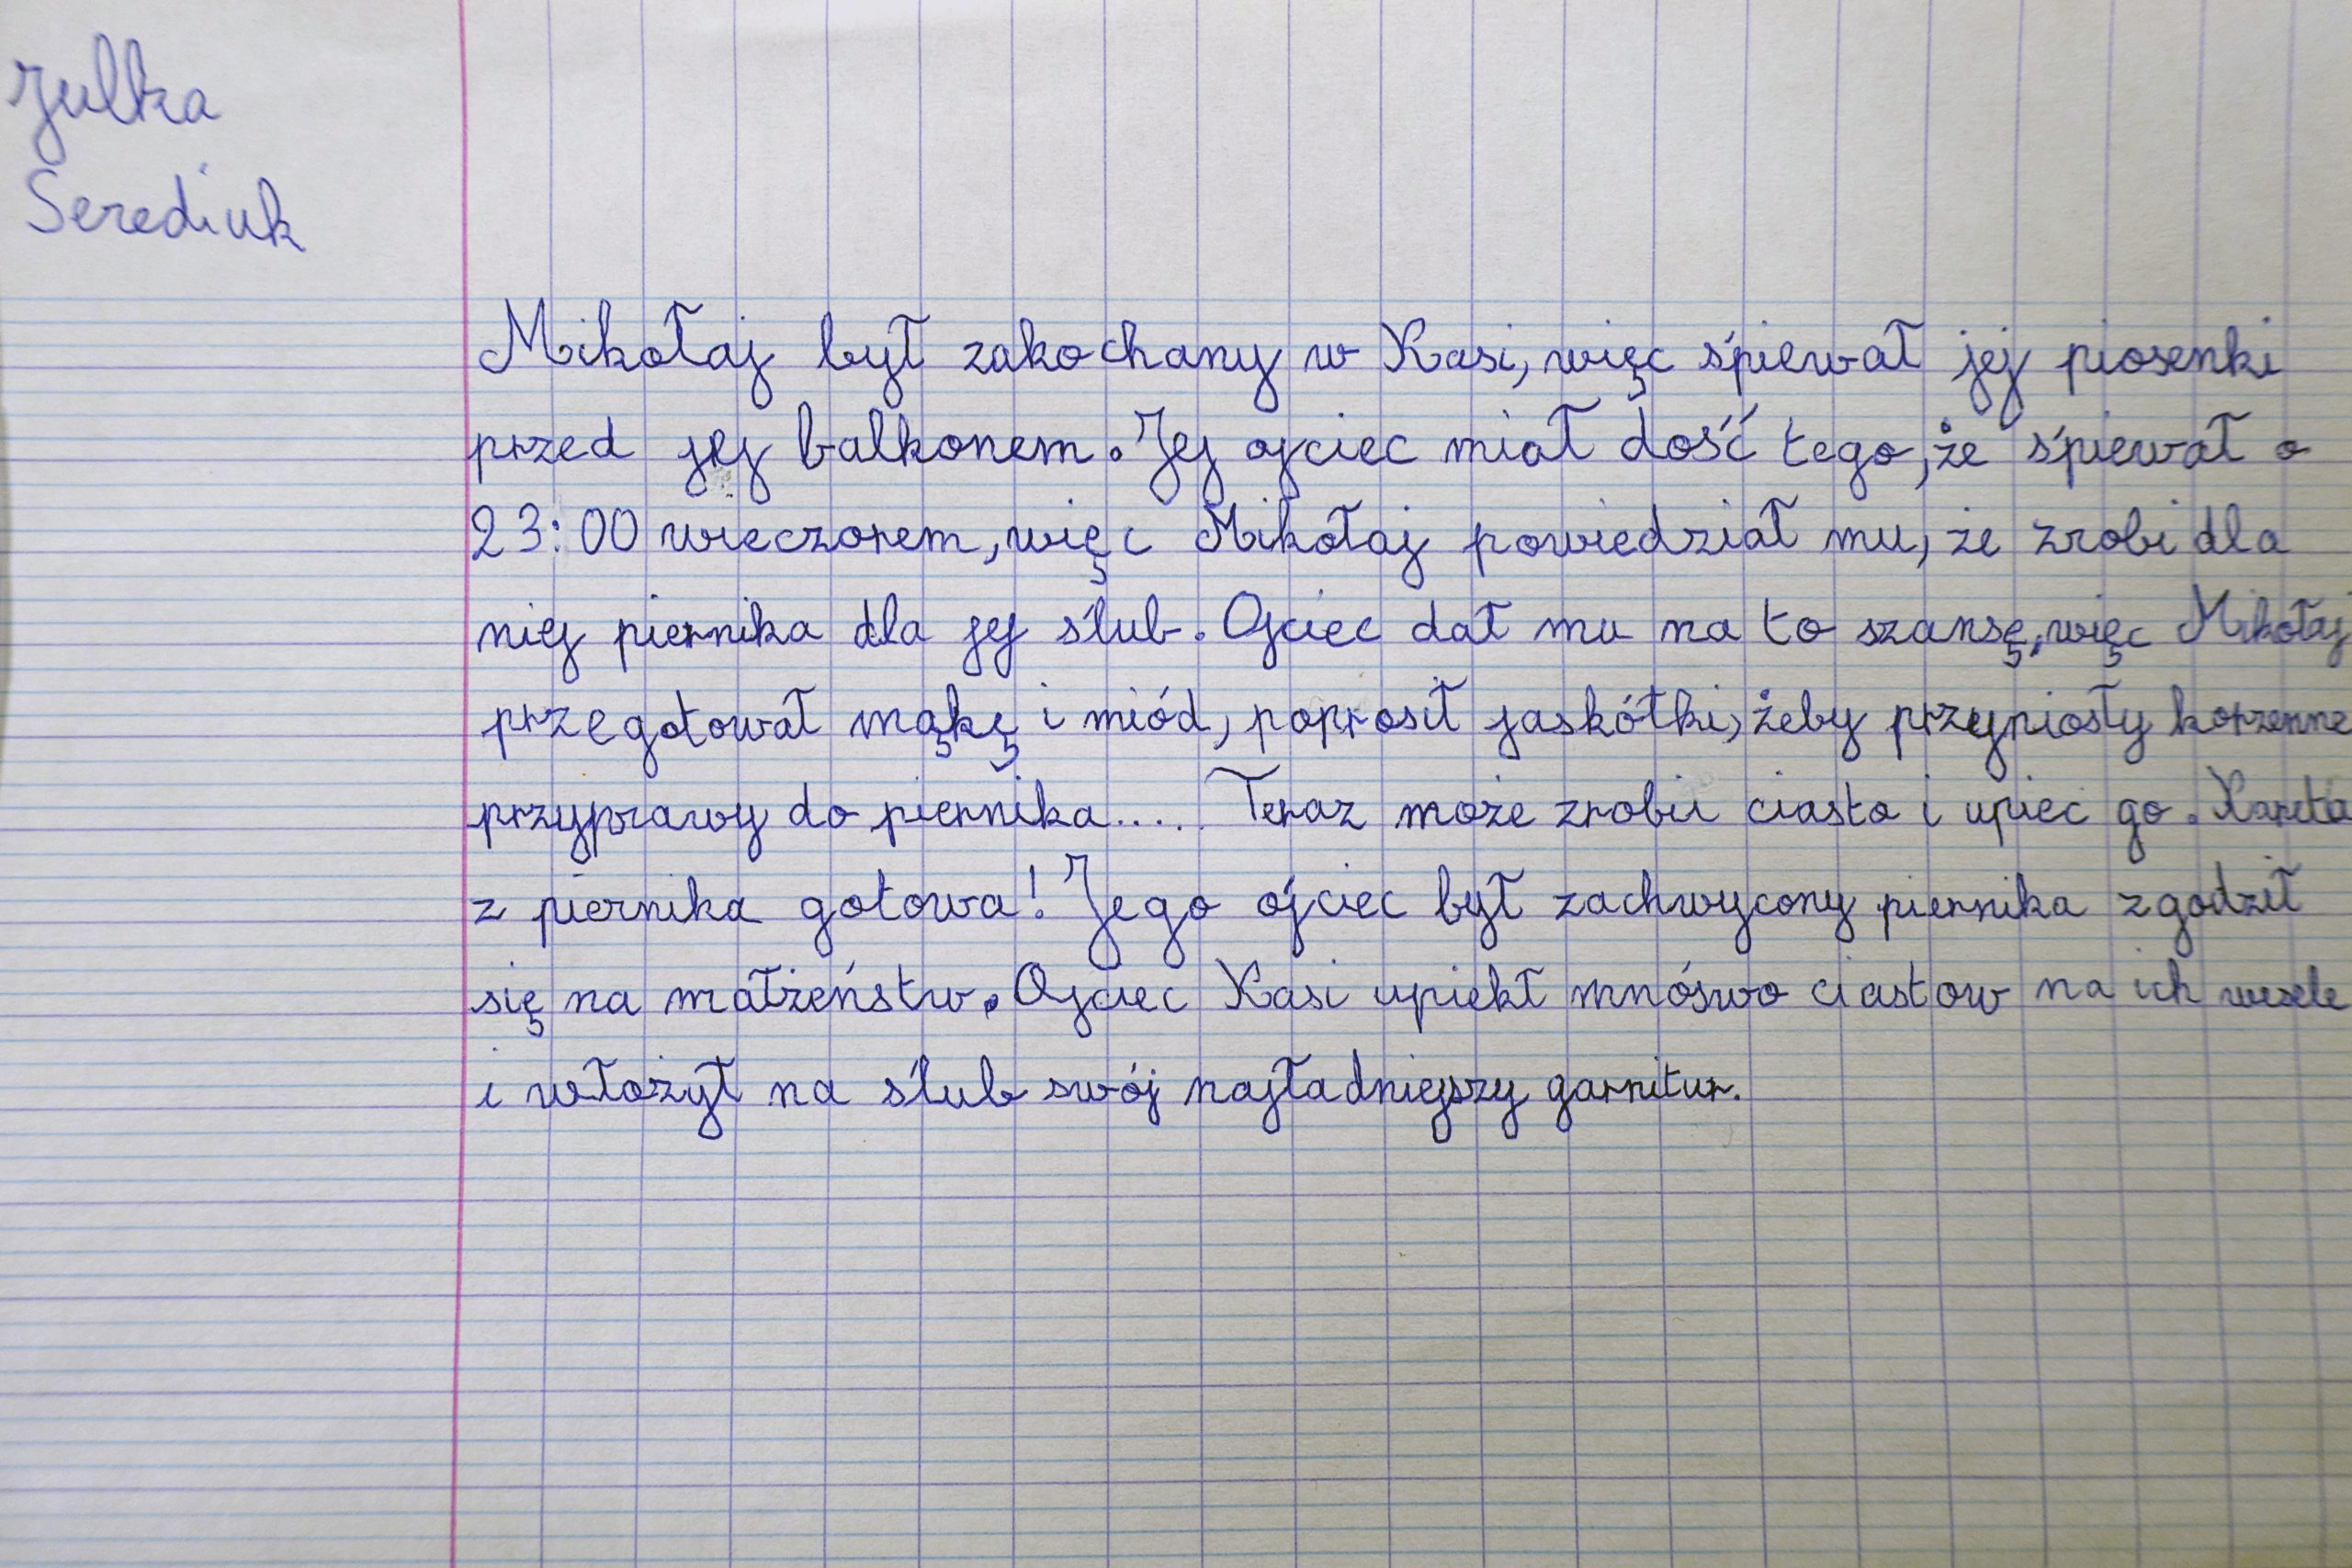 Julka
Serediuk
Mikołaj był zakochany w Kasi, więc śpiewał jej piosenki
przed jej balkonem. Jej ojciec miał dość tego, że śpiewał o
23:00 wieczorem, więc Mikołaj powiedział mu, że zrobi dla
niej piernika dla jej ślub. Ojciec dał mu na to szansę, więc Mikołaj
przegotował mąkę i miód, poprosił jaskółki, żeby przyniosły korzenne
przyprawy do piernika..... Teraz może zrobić ciasto i upiec go. Kareta
z piernika gotowa! Jego ojciec był zachwycony piernika zgodził
się na małżeństw. Ojciec Kasi upiekł mnóswo ciastow na ich wesele
i włożył na ślub swój najładniejszy garnitur.